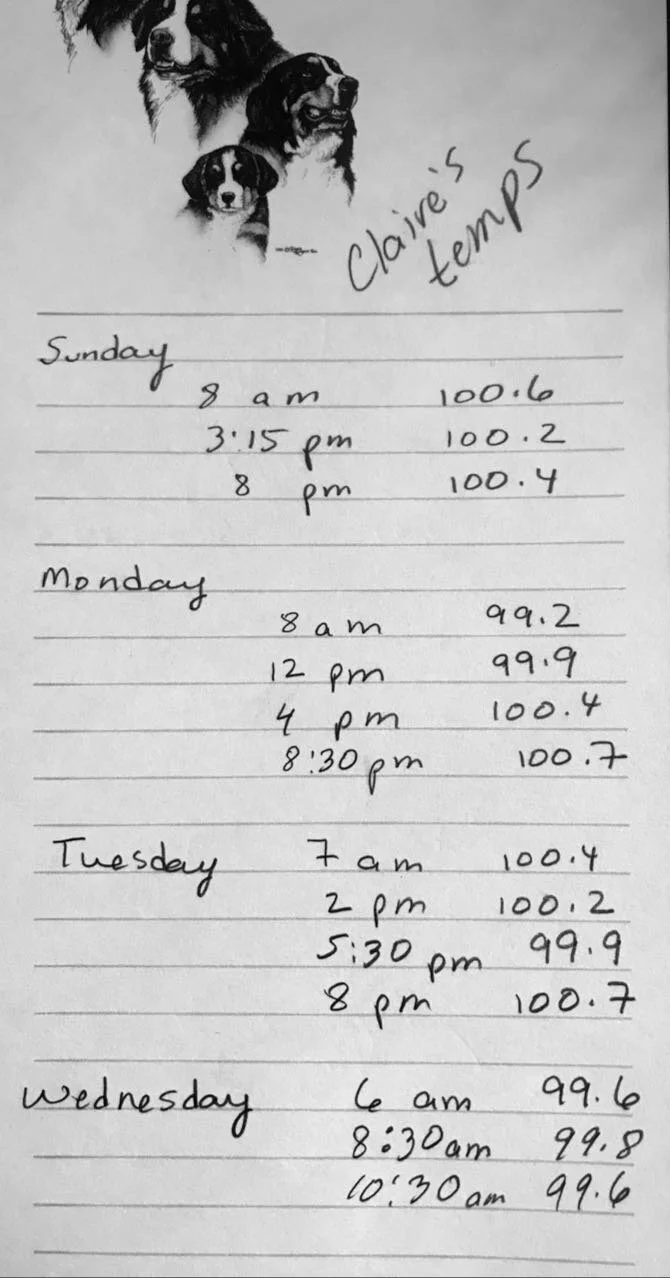 Claire's
temps
Sunday
8 am 100.6
3:15 pm 100.2
8 pm 100.4
Monday
8 am 99.2
12 pm 99.9
4 pm 100.4
8:30 pm 100.7
Tuesday 7 am 100.4
2 pm 100.2
5:30 pm 99.9
8 pm 100.7
Wednesday 6 am 99.6
8:30 am 99.8
10:30 am 99.6